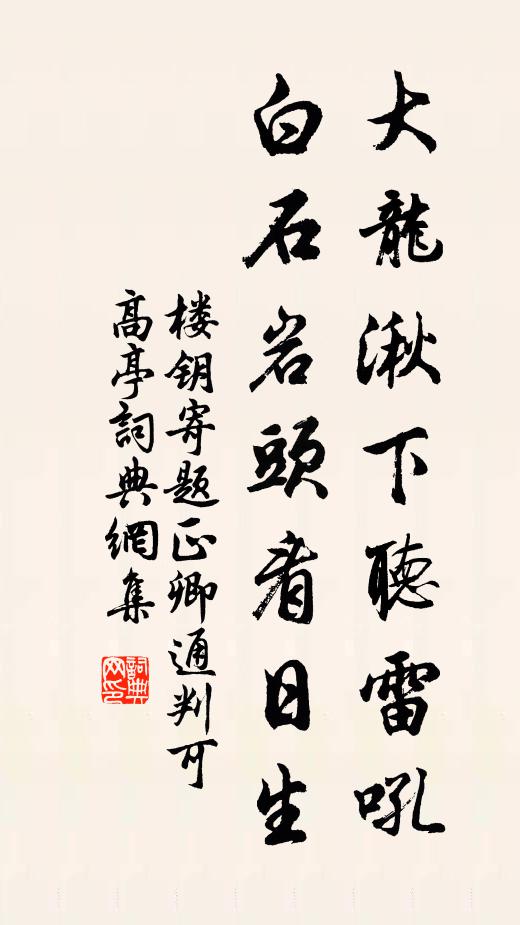 大龍湫下聽雷吼
白石岩頭看日生
楼钥寄题正卿通判可
高亭詞典網集
詞典网印